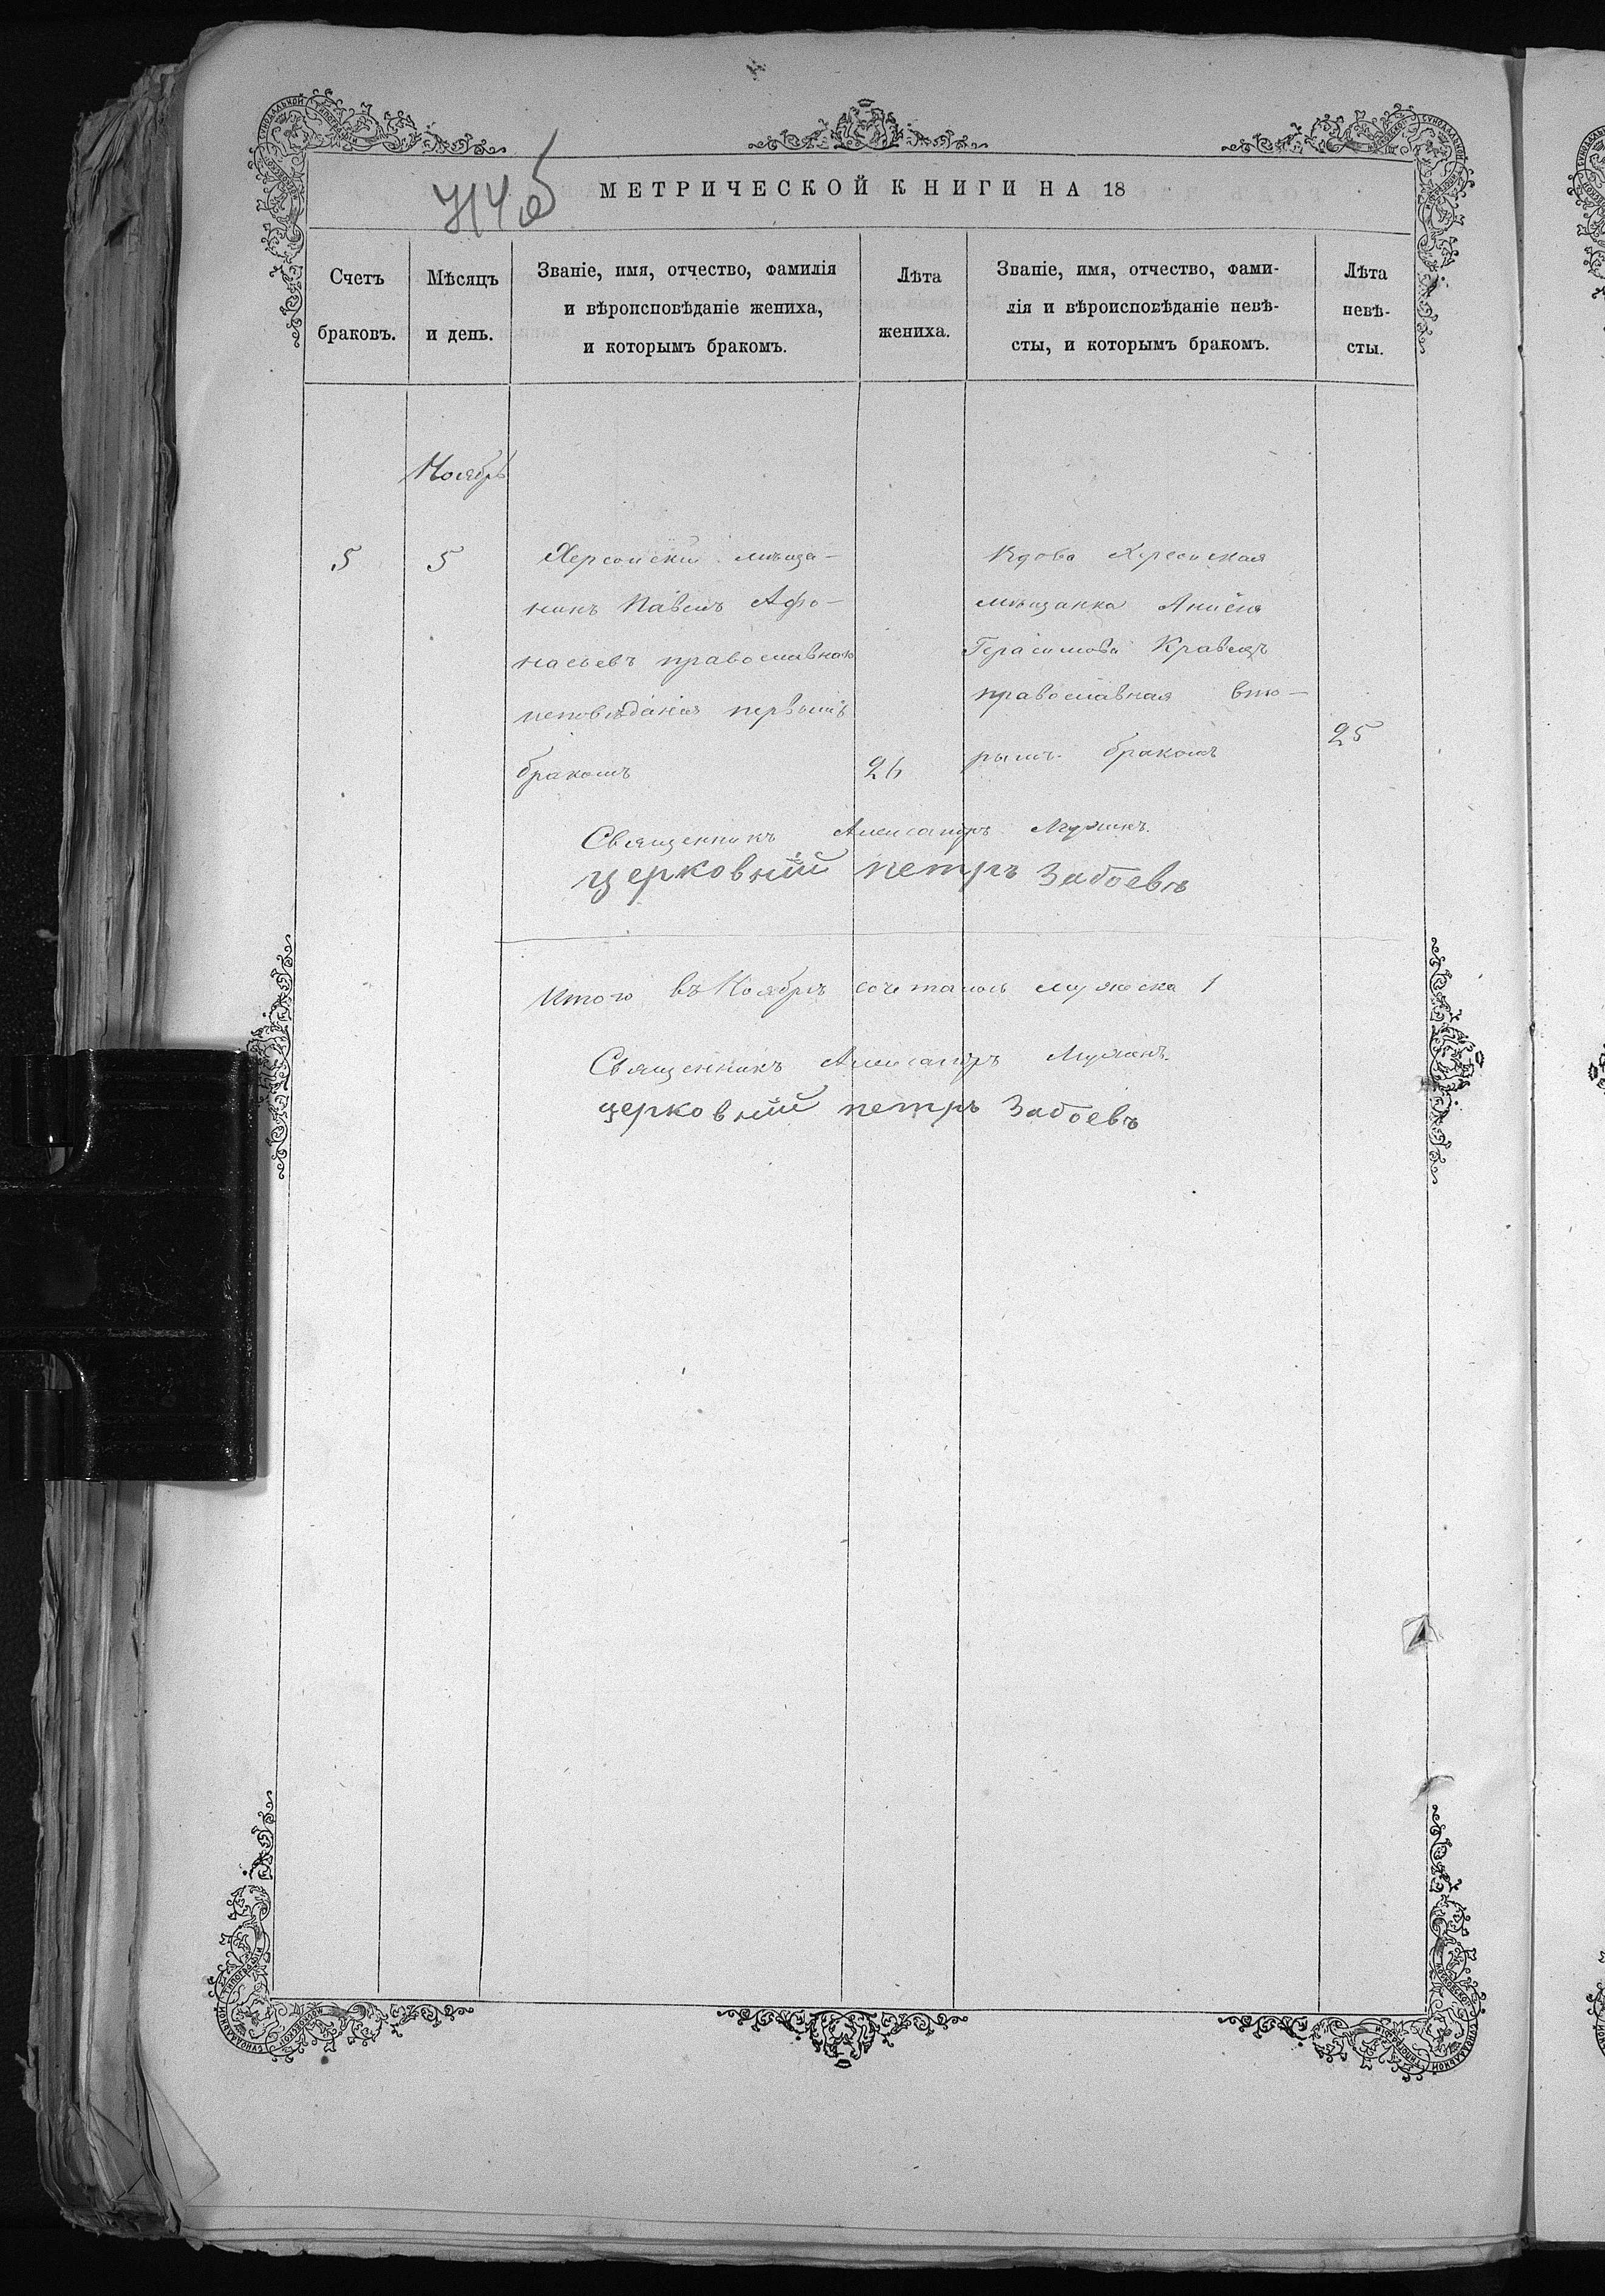 МЕТРИЧЕСКОЙ КНИГИ НА 18
Счетъ браковъ.
Мѣсяцъ и день.
Званіе, имя, отчество, фамилія
и вѣроисповѣданіе жениха,
и которымъ бракомъ.
Лѣта
жениха.
Званіе, имя, отчество, фами-
лія и вѣроисповѣданіе невѣ-
сты, и которымъ бракомъ.
Лѣта
невѣ-
сты.
Ноябрь
5
5
Херсонскій мѣща-
нинъ Павелъ Афо-
насьевъ православнаго
исповѣданія первымъ
бракомъ
26
Вдова Херсонская
мѣщанка Анисія
Герасимова Кравецъ
православная вто-
рымъ бракомъ
25
Священникъ Александръ
церковній петръ Забоевъ
Итого въ Ноябрѣ сочеталось мужеска 1
Священникъ Александръ
церковній петръ Забоевъ